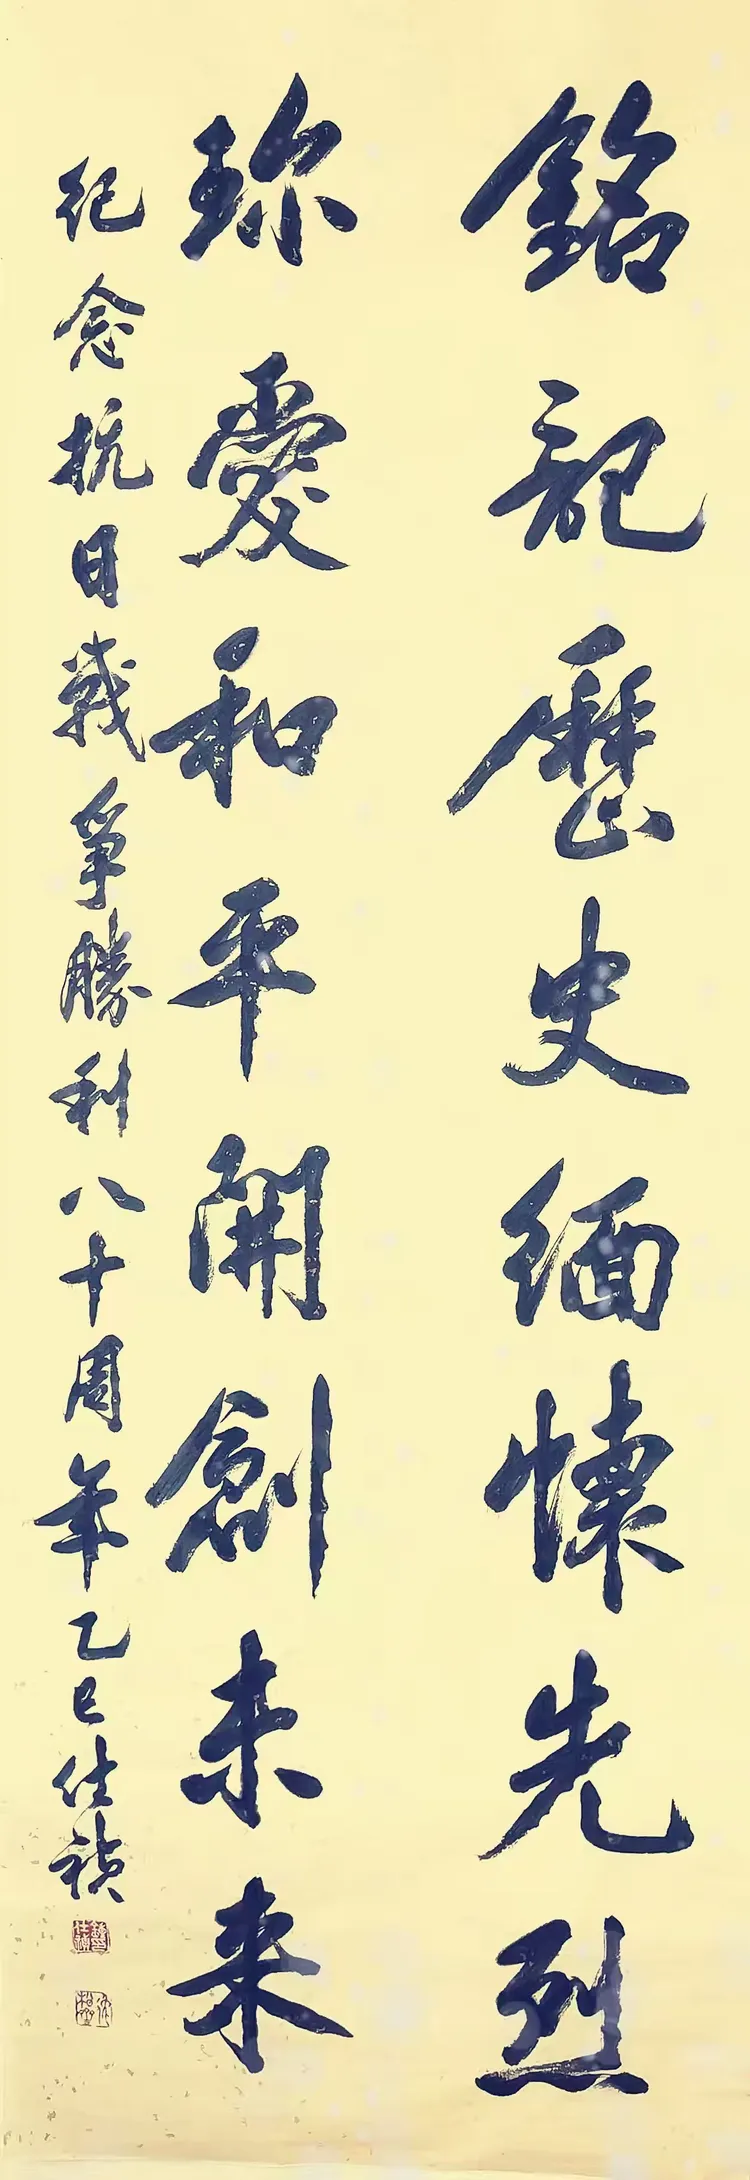 銘記歷史缅懷先烈
珎愛和平開創未来
纪念抗日戰爭勝利八十周年乙巳仕禎